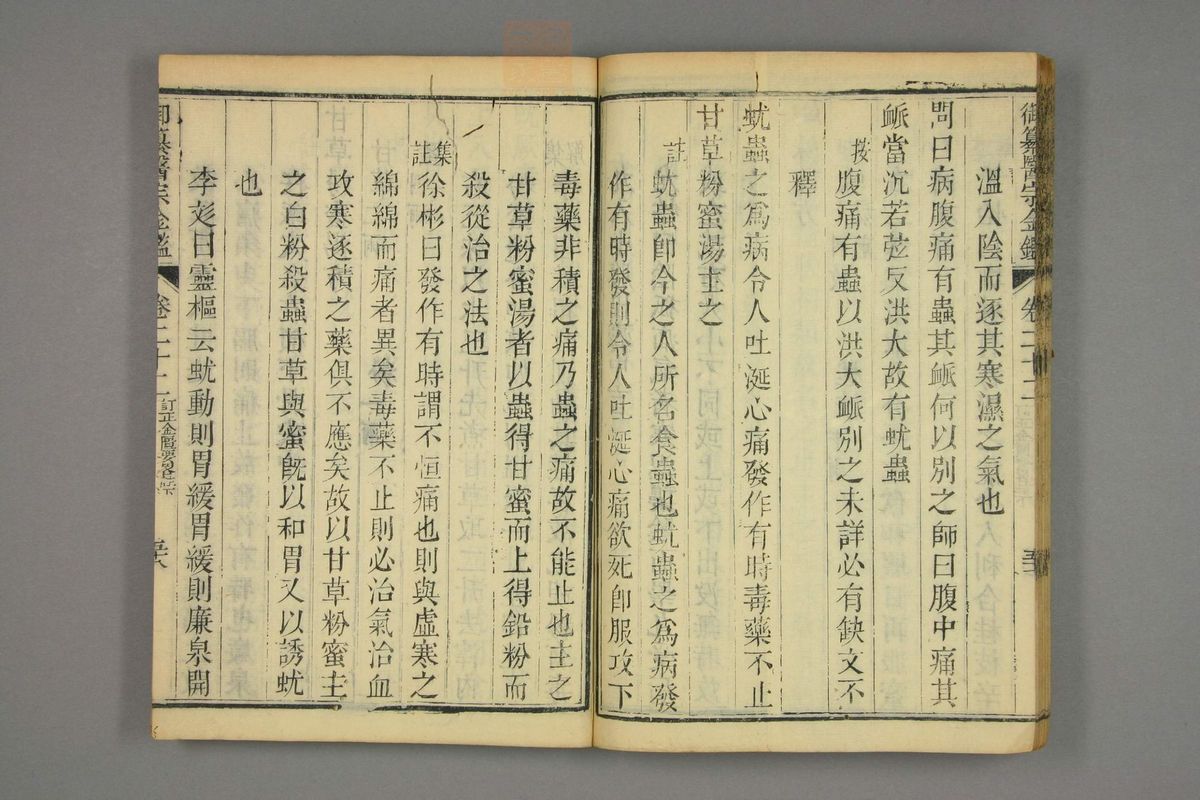 御纂醫宗金鑑 卷二十二
溫入陰而逐其寒濕之氣也
問曰病腹痛有蟲其脈何以別之師曰腹中痛其
脈當沉若弦反洪大故有蚘蟲
按 腹痛有蟲以洪大脈別之未詳必有缺文不
釋
蚘蟲之為病令人吐涎心痛發作有時毒藥不止
甘草粉蜜湯主之
註 蚘蟲卽今之人所名食蟲也蚘蟲之為病發
作有時發則令人吐涎心痛欲死卽服攻下
毒藥非積之痛乃蟲之痛故不能止也主之
甘草粉蜜湯者以蟲得甘蜜而上得鉛粉而
殺從治之法也
集註 徐彬曰發作有時謂不恒痛也則與虛寒之
綿綿而痛者異矣毒藥不止則必治氣治血
攻寒逐積之藥俱不應矣故以甘草粉蜜主
之白粉殺蟲甘草與蜜旣以和胃又以誘蚘
也
李彣曰靈樞云蚘動則胃緩胃緩則廉泉開
御纂醫宗金鑑 卷二十二 訂正金匱要畧卷六